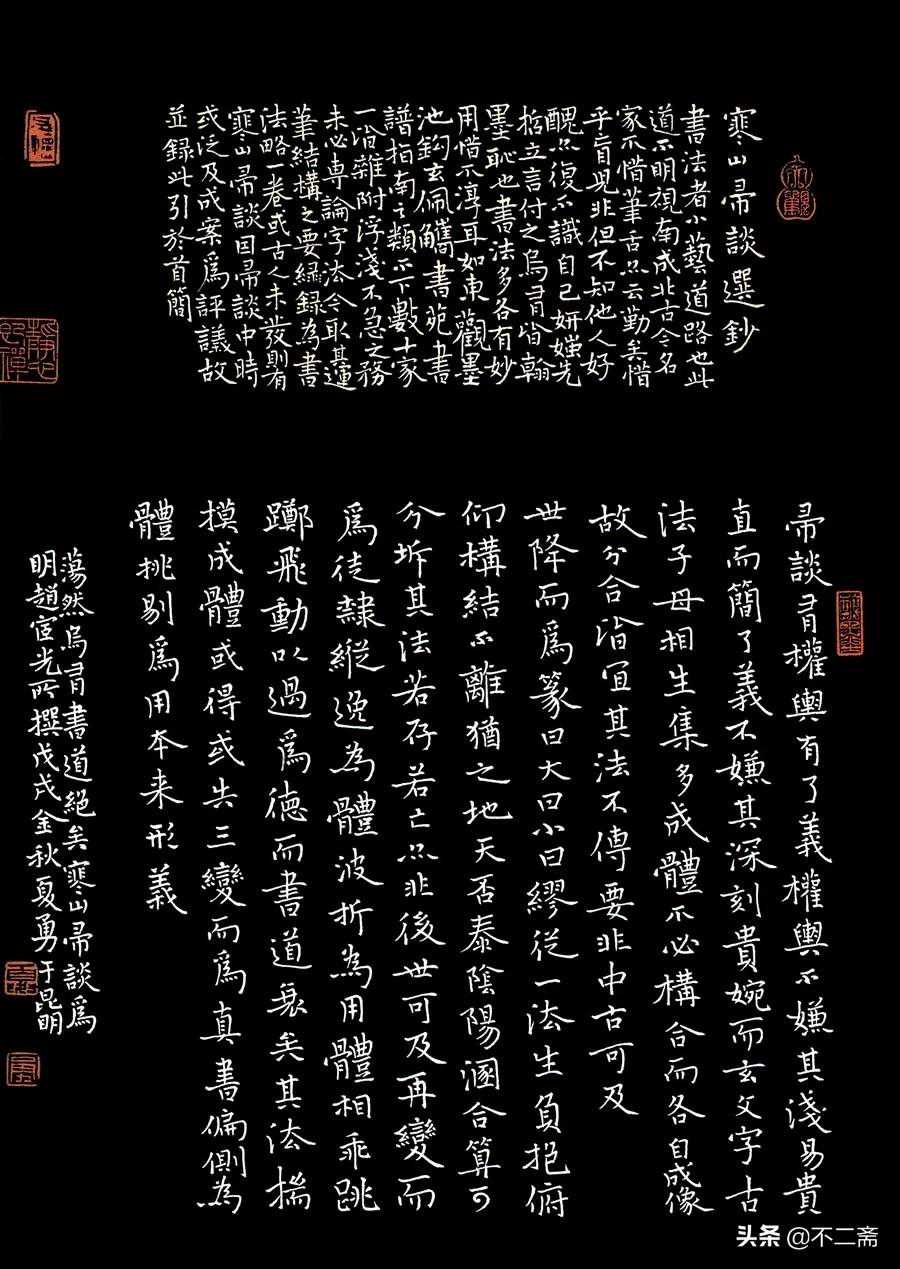 寒山帚談選鈔
書法者小藝道路也此
道不明視南成北古今名
家不惜筆舌以云勤矣惜
乎盲見非但不知他人好
醜亦復不識自己妍媸先
哲立言付之烏有皆翰
墨恥也書法多各有妙
用惜不淳耳如東觀墨
池鈎玄佩觿書苑書
譜指南之類不下數十家
一涉雜附浮淺不急之務
未必專論字法今取其適
筆結構之要緣錄為書
法略一卷或古人未發則有
寒山帚談因帚談中時
或泛及成案為評議故
並錄此引於首簡
帚談有權輿有了義權輿不嫌其淺易貴
直而簡了義不嫌其深刻貴婉而玄文字古
法子母相生集多成體不必構合而各自成像
故分合皆宜其法不傳要非中古可及
世降而爲篆曰大曰小曰繆從一法生負抱俯
仰構結不離猶之地天否泰陰陽溷合算可
分坼其法若存若亡亦非後世可及再變而
爲徒隸縱逸為體波折為用體相乖跳
躑飛動以過爲德而書道衰矣其法揣
摸成體或得或失三變而爲真書偏側為
體挑剔爲用本来形義
蕩然烏有書道絕矣寒山帚談爲
明趙宧光所撰戊戌金秋夏勇于昆明
头条 @不二斋